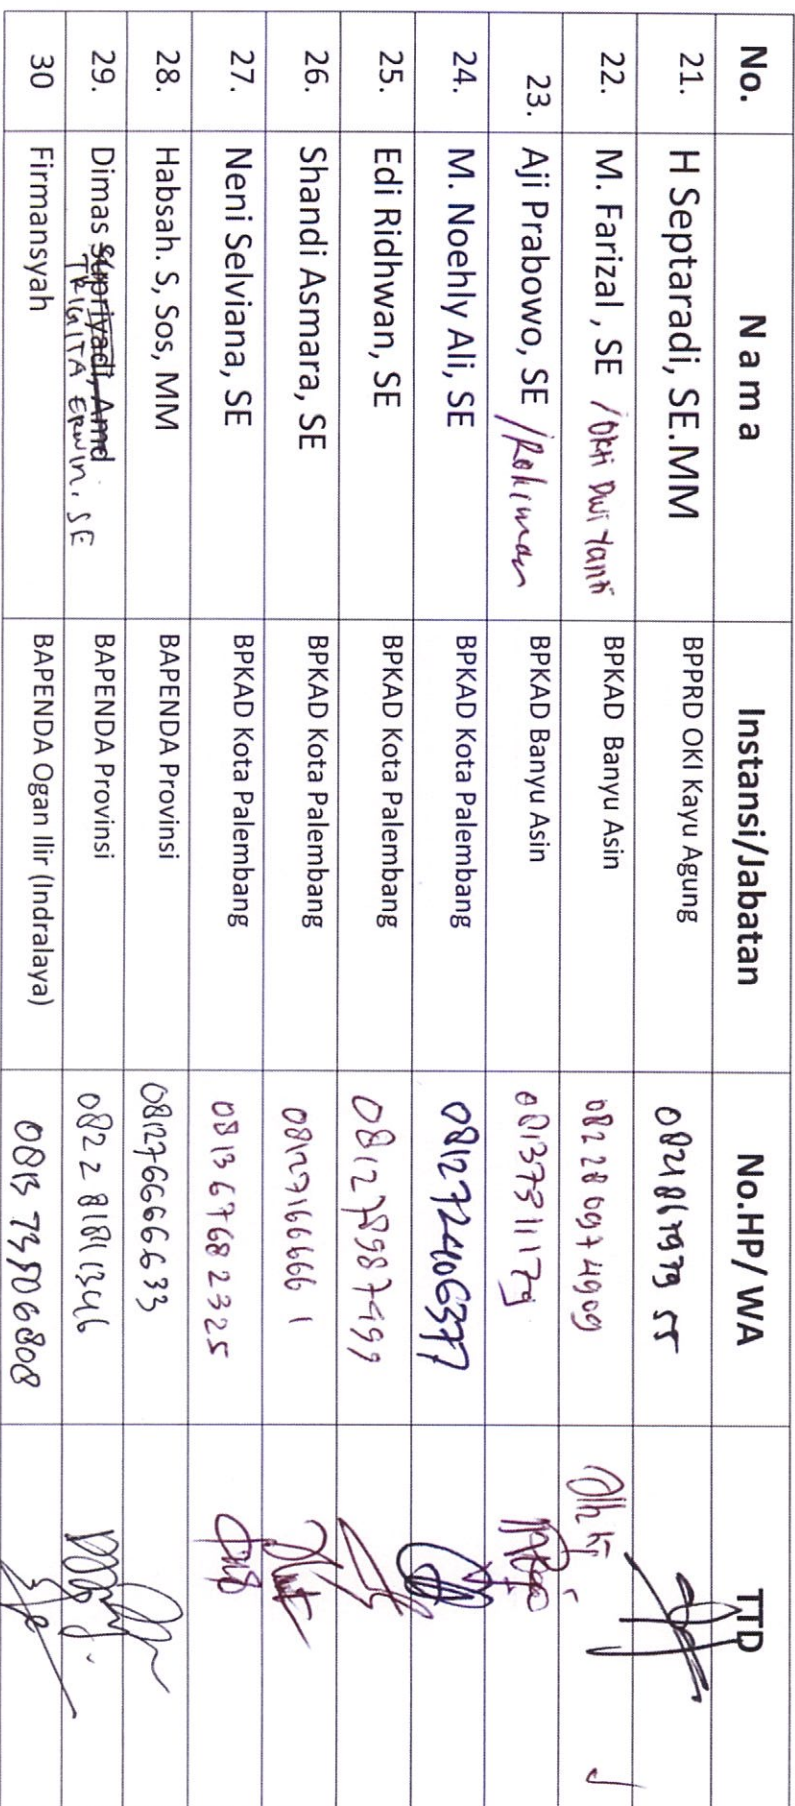 No. Nama Instansi/Jabatan No.HP/ WA TTD
21. H Septaradi, SE.MM BPPRD OKI Kayu Agung
22. M. Farizal , SE / OKTI DWI YANTI BPKAD Banyu Asin 082280974909
23. Aji Prabowo, SE /Rohiman BPKAD Banyu Asin
24. M. Noehly Ali, SE BPKAD Kota Palembang 081272406377
25. Edi Ridhwan, SE BPKAD Kota Palembang 081278987499
26. Shandi Asmara, SE BPKAD Kota Palembang 081271666661
27. Neni Selviana, SE BPKAD Kota Palembang 081367682325
28. Habsah. S, Sos, MM BAPENDA Provinsi 081276666633
29. Dimas Supriyadi, Amd BAPENDA Provinsi 082281811346
TRIGITA ERWIN. SE
30 Firmansyah BAPENDA Ogan Ilir (Indralaya) 081373506808